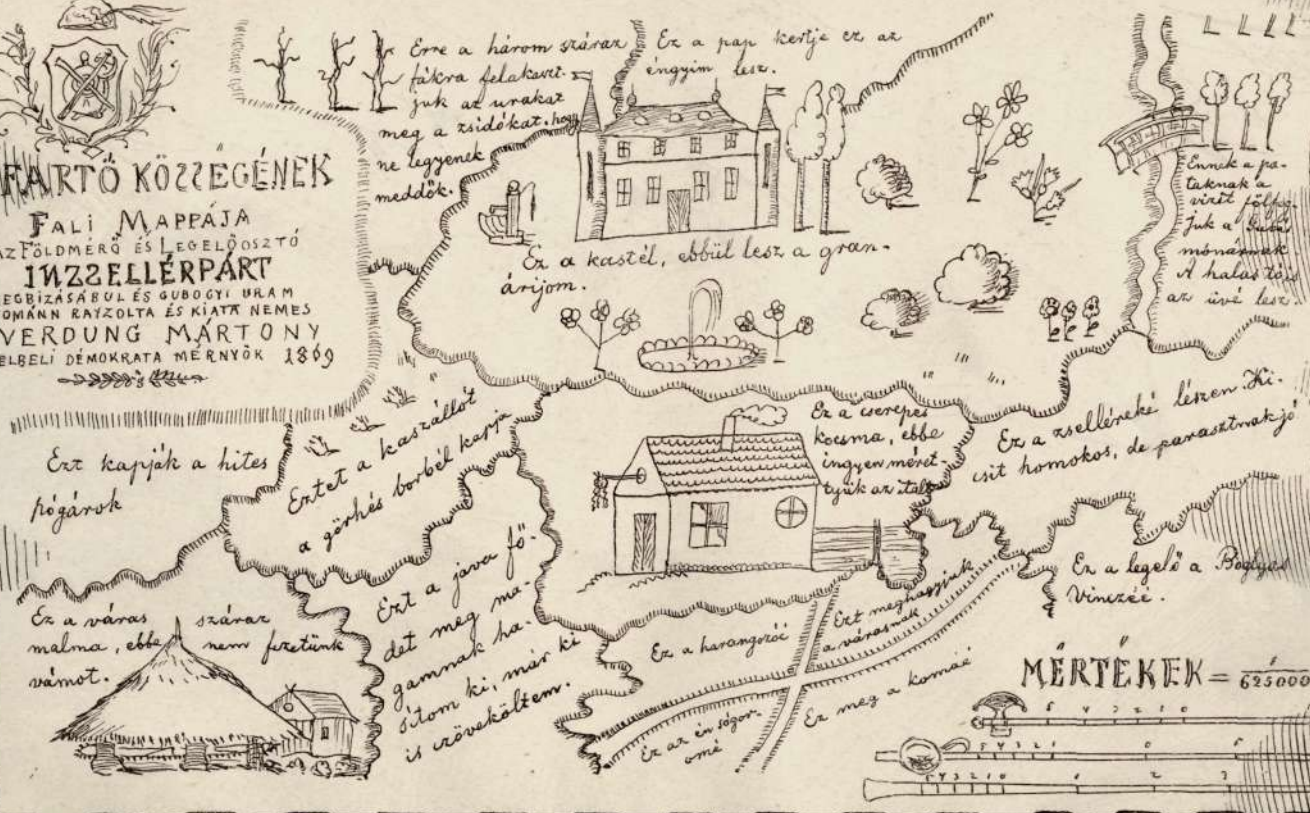 FARTŐ KÖZSÉGÉNEK
FALI MAPPÁJA
AZ FÖLDMÉRŐ ÉS LEGELŐOSZTÓ
INZSELLÉRPÁRT
MEGBIZÁSÁBUL ÉS GUBOGYI URAM
RAYZOLTA ÉS KIATA NEMES
VERDUNG MÁRTONY
ELBELI DÉMOKRATA MÉRNYÖK 1869
Erre a három száraz
fákra felakaszt-
juk az urakat
meg a zsidókat, hogy
ne legyenek
meddők.
Ez a pap kertje ez az
éngyim lesz.
Ennek a pa-
taknak a
vizit
juk a
mónárnak
A halas tó is
az üvé lesz.
Ez a kastél, ebbül lesz a gran-
árijom.
Ezt kapják a hites
pógárok
Eztet a kaszállót
a görhés borbél kapja
Ez a cserepes
kocsma, ebbe
ingyen méret-
tyük az italt
Ez a zselléreké lészen. Ki-
csit homokos, de parasztnak jó
Ez a város száraz
malma, ebbe nem fizetünk
vámot.
Ezt a java fő-
det meg ma-
gamnak ha-
sítom ki, már ki
is czövekőltem.
Ez a harangozóé
Ezt meghagyjuk
a városnak
Ez az én sógor-
omé
Ez meg a komáé
Ez a legelő a Boglyas
Vinczéé.
MÉRTÉKEK = 1/625000